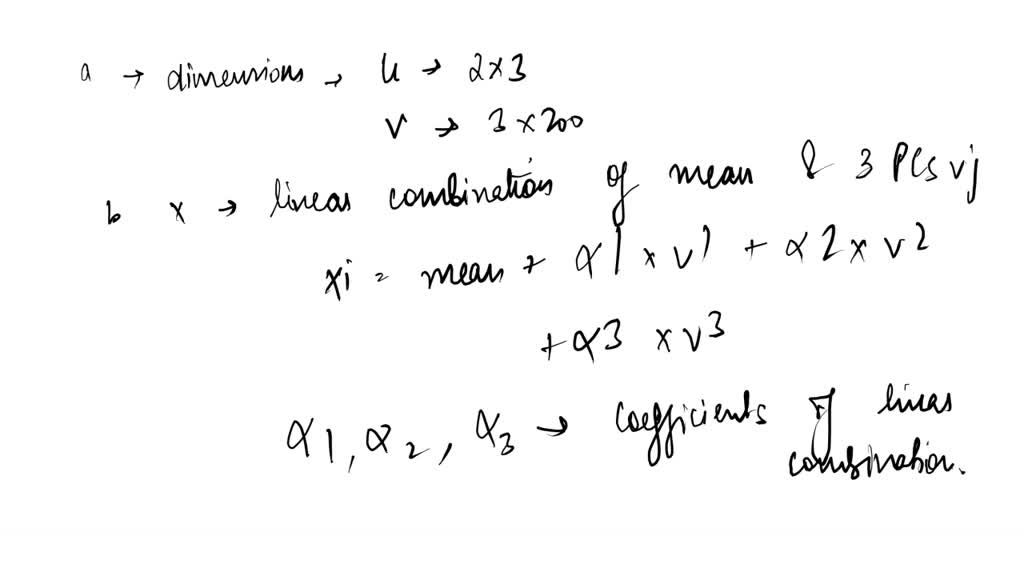 a → dimensions → u → 2×3
v → 3×200
b x → linear combination of mean & 3 PCs vj
xi = mean + α1 × v1 + α2 × v2
+ α3 × v3
α1, α2, α3 → coefficients of linear
combination.